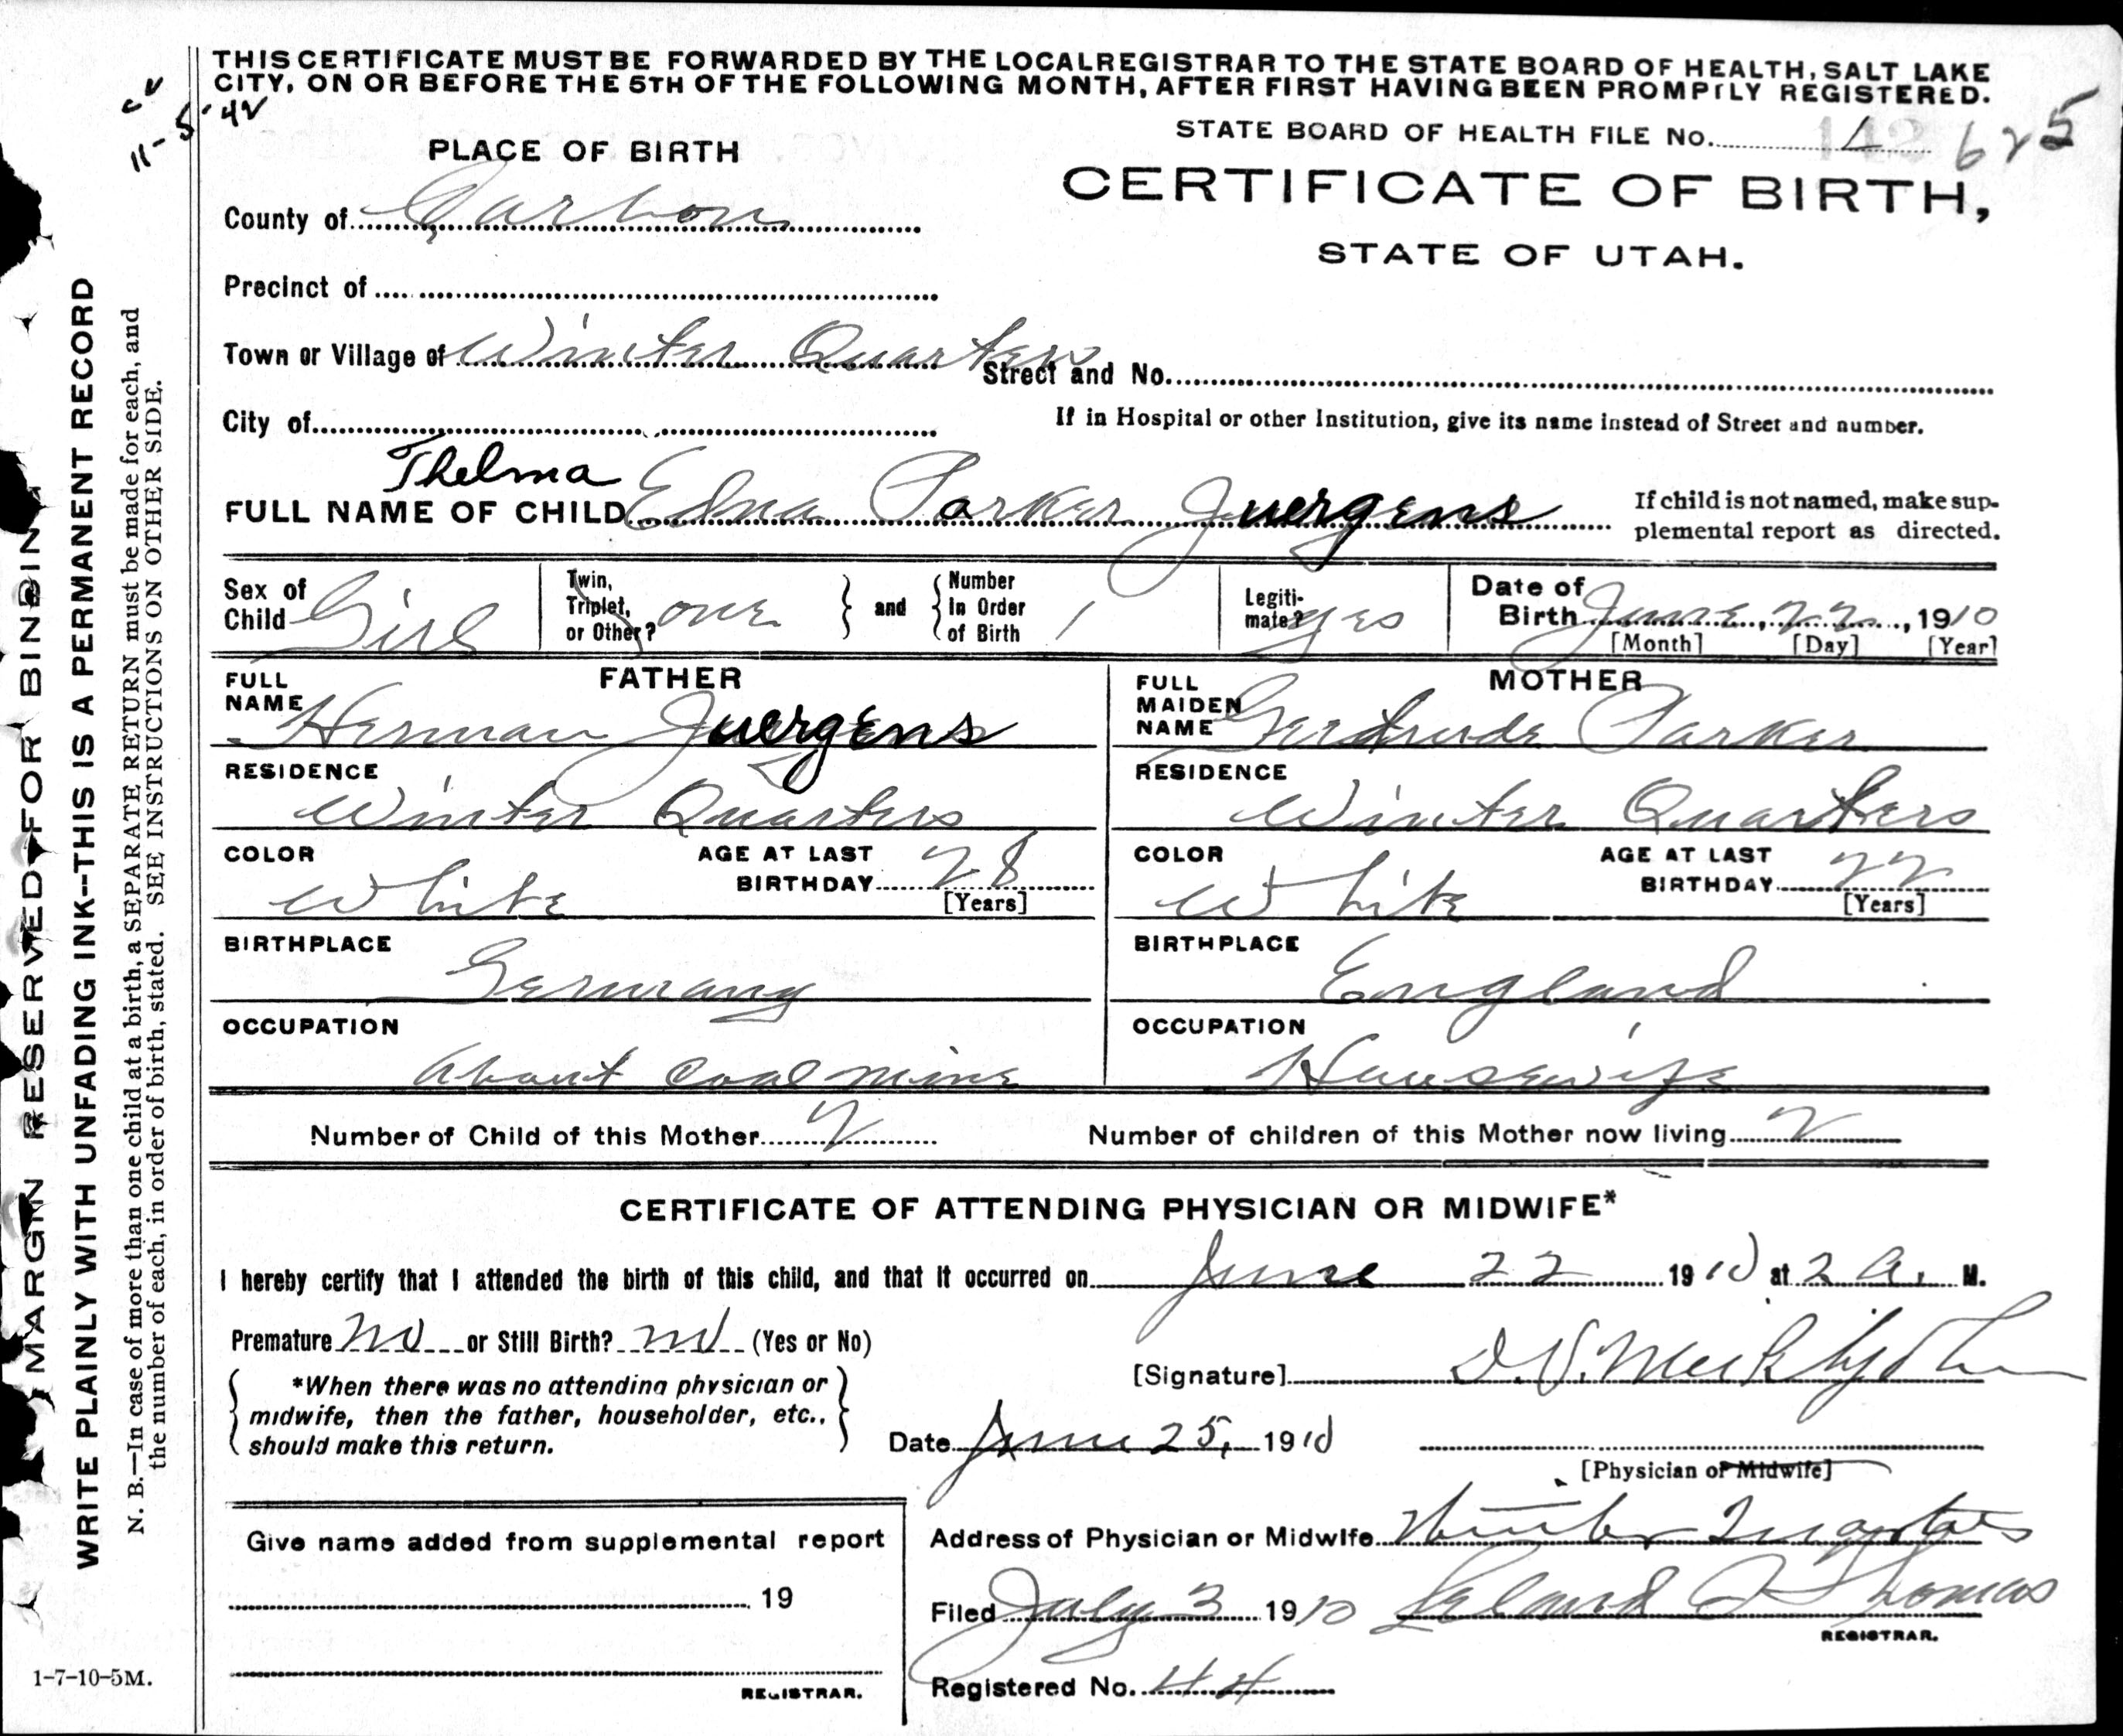 THIS CERTIFICATE MUST BE FORWARDED BY THE LOCAL REGISTRAR TO THE STATE BOARD OF HEALTH, SALT LAKE
CITY, ON OR BEFORE THE 5TH OF THE FOLLOWING MONTH, AFTER FIRST HAVING BEEN PROMPTLY REGISTERED.
11-5-42
STATE BOARD OF HEALTH FILE No. 625
PLACE OF BIRTH
CERTIFICATE OF BIRTH,
STATE OF UTAH.
County of Carbon
Precinct of
Town or Village of Winter Quarters
Street and No.
City of
If in Hospital or other Institution, give its name instead of Street and number.
Thelma
FULL NAME OF CHILD Edna Parker Juergens
If child is not named, make sup-
plemental report as directed.
Sex of Child Girl
Twin, Triplet, or Other? one
and
Number In Order of Birth 1
Legiti-mate? yes
Date of Birth June, 22, 1910
[Month] [Day] [Year]
FATHER
FULL NAME Herman Juergens
RESIDENCE
Winter Quarters
COLOR White
AGE AT LAST BIRTHDAY 28
[Years]
BIRTHPLACE
Germany
OCCUPATION
About Coal mine
MOTHER
FULL MAIDEN NAME Gertrude Parker
RESIDENCE
Winter Quarters
COLOR White
AGE AT LAST BIRTHDAY 22
[Years]
BIRTHPLACE
England
OCCUPATION
Housewife
Number of Child of this Mother 2
Number of children of this Mother now living 2
CERTIFICATE OF ATTENDING PHYSICIAN OR MIDWIFE*
I hereby certify that I attended the birth of this child, and that it occurred on June 22 1910 at 2 A. M.
Premature No or Still Birth? no (Yes or No)
[Signature]
*When there was no attending physician or
midwife, then the father, householder, etc.,
should make this return.
Date June 25, 1910
[Physician or Midwife]
Give name added from supplemental report
19
REGISTRAR.
Address of Physician or Midwife Winter Quarters
Filed July 3 1910 Leland Thomas
REGISTRAR.
Registered No. 44
1-7-10-5M.
MARGIN RESERVED FOR BINDIN
WRITE PLAINLY WITH UNFADING INK--THIS IS A PERMANENT RECORD
N. B.—In case of more than one child at a birth, a SEPARATE RETURN must be made for each, and
the number of each, in order of birth, stated. SEE INSTRUCTIONS ON OTHER SIDE.